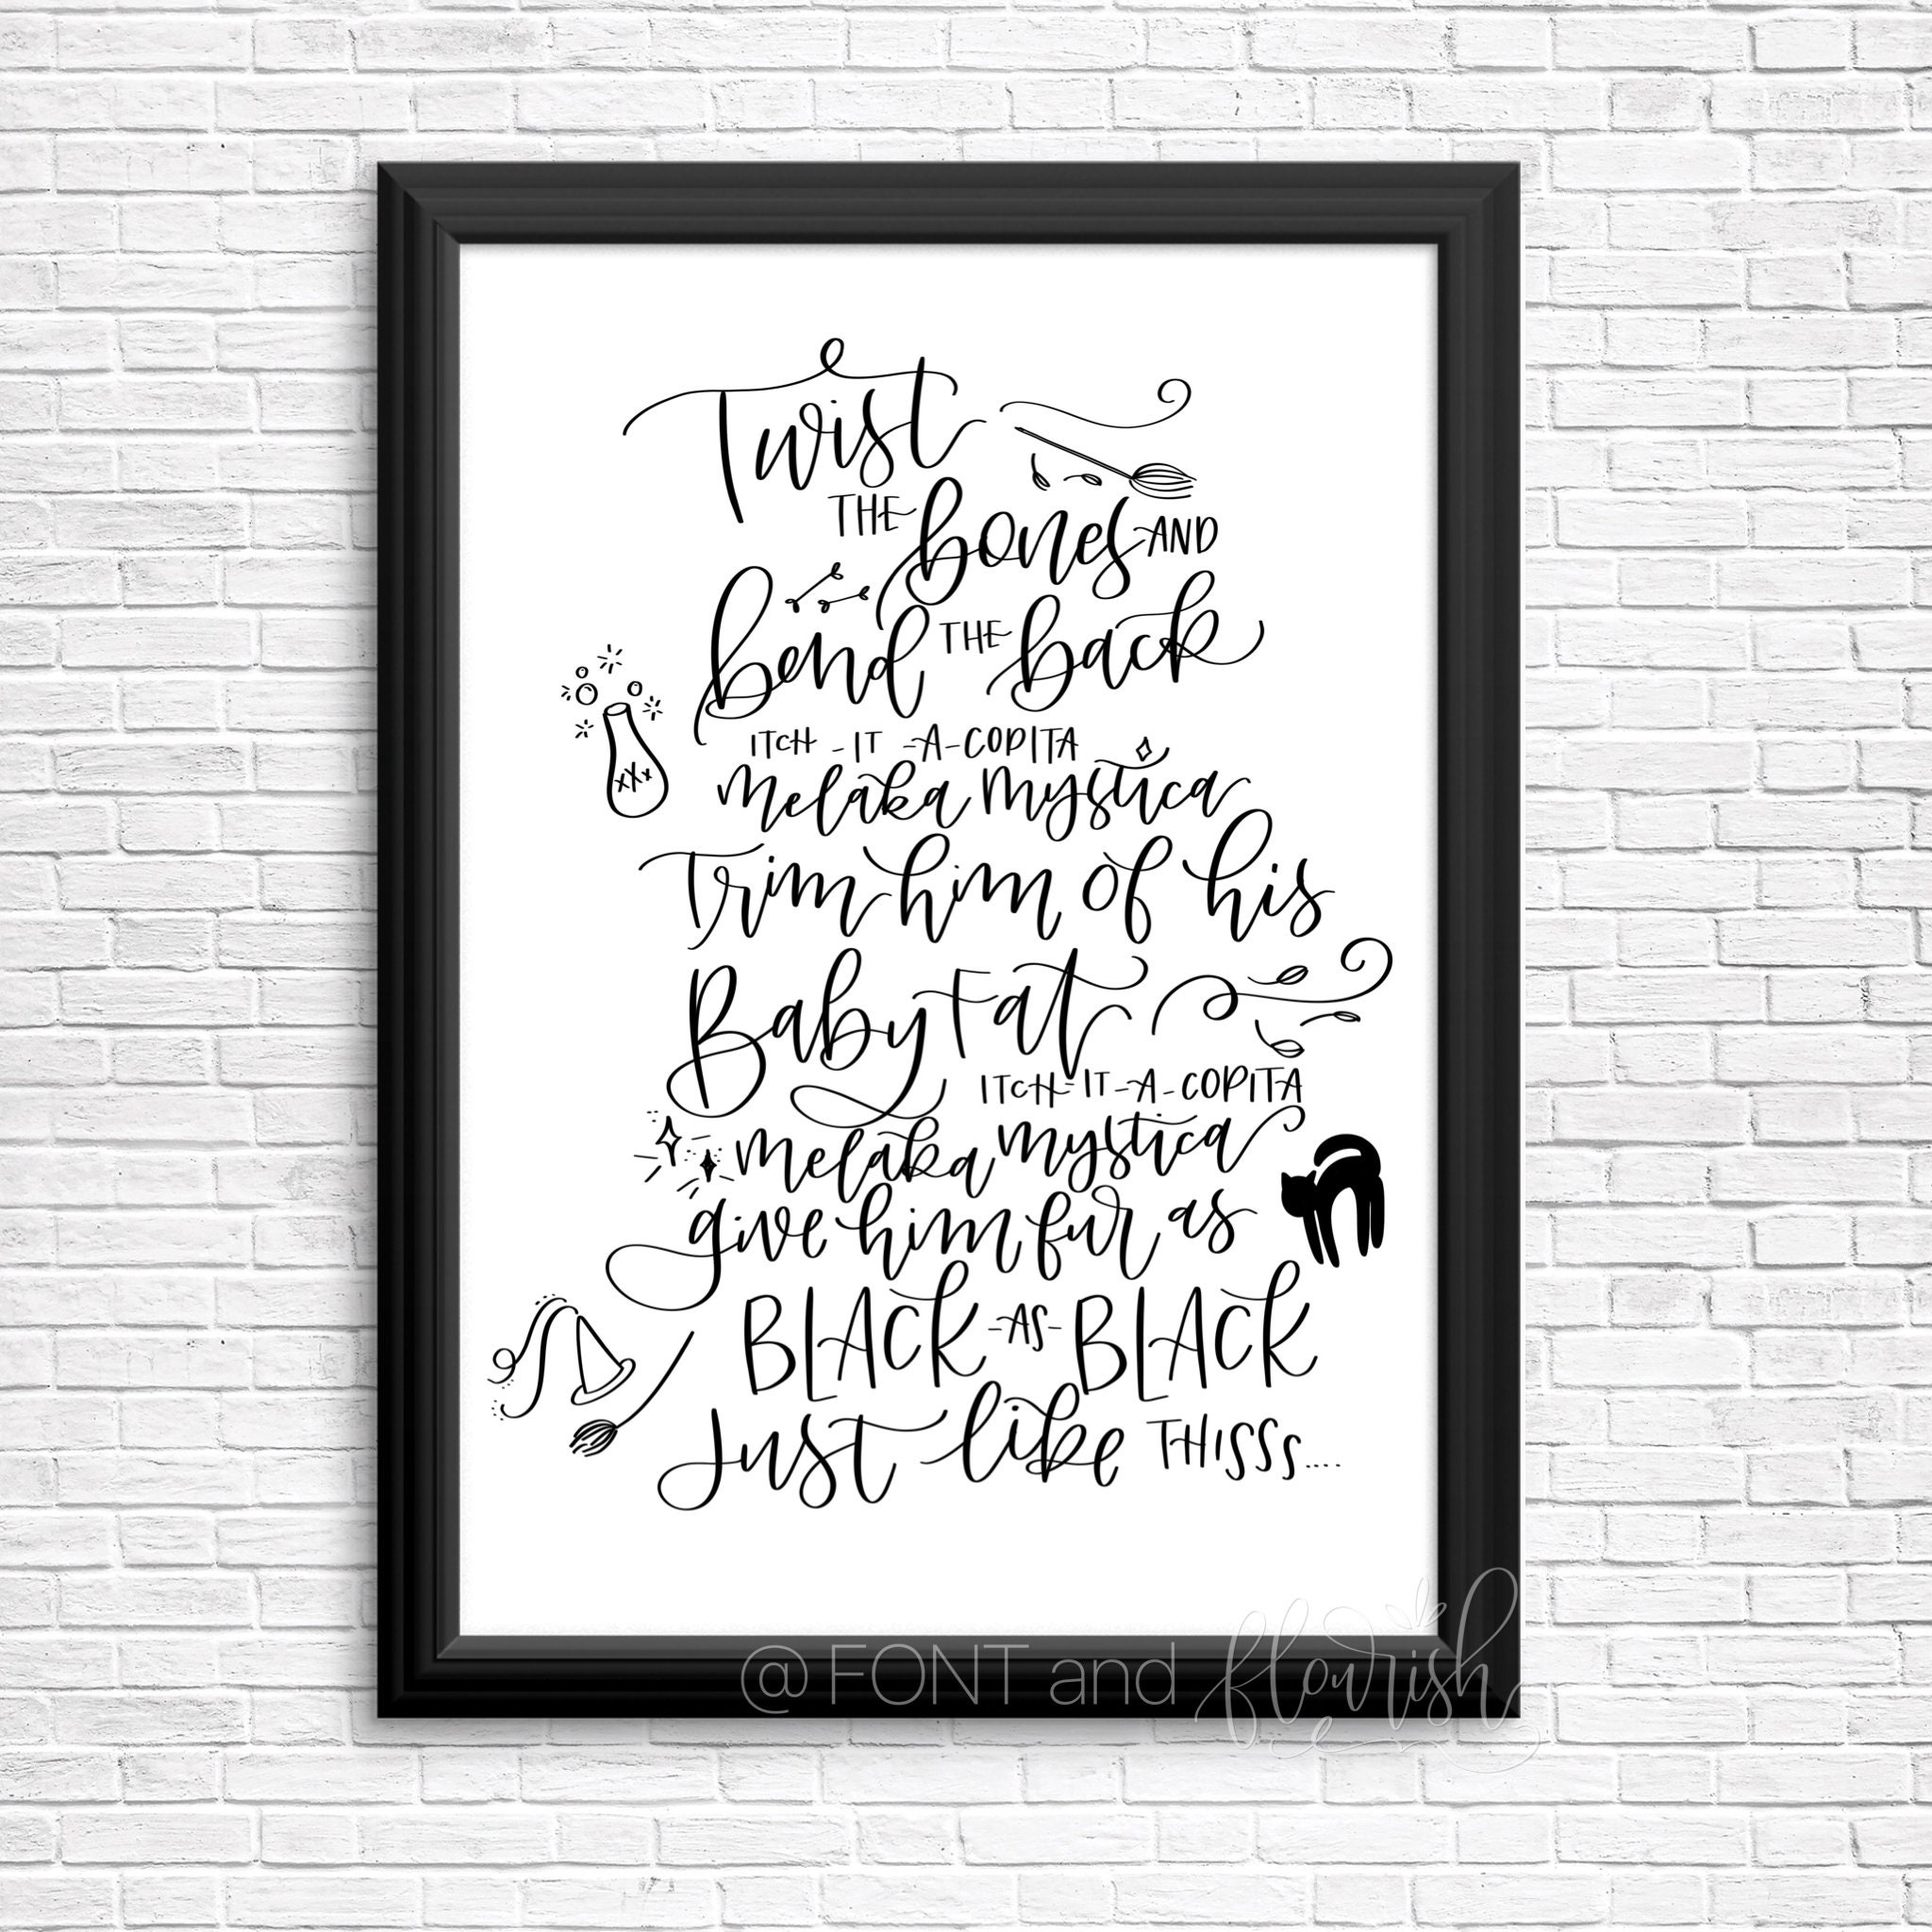 Twist
THE bones AND
bend THE back
ITCH-IT-A-COPITA
melaka mystica
Trim him of his
Baby Fat
ITCH-IT-A-COPITA
melaka mystica
give him fur as
BLACK-AS-BLACK
Just like THISSS....
xXx
@FONT and flourish